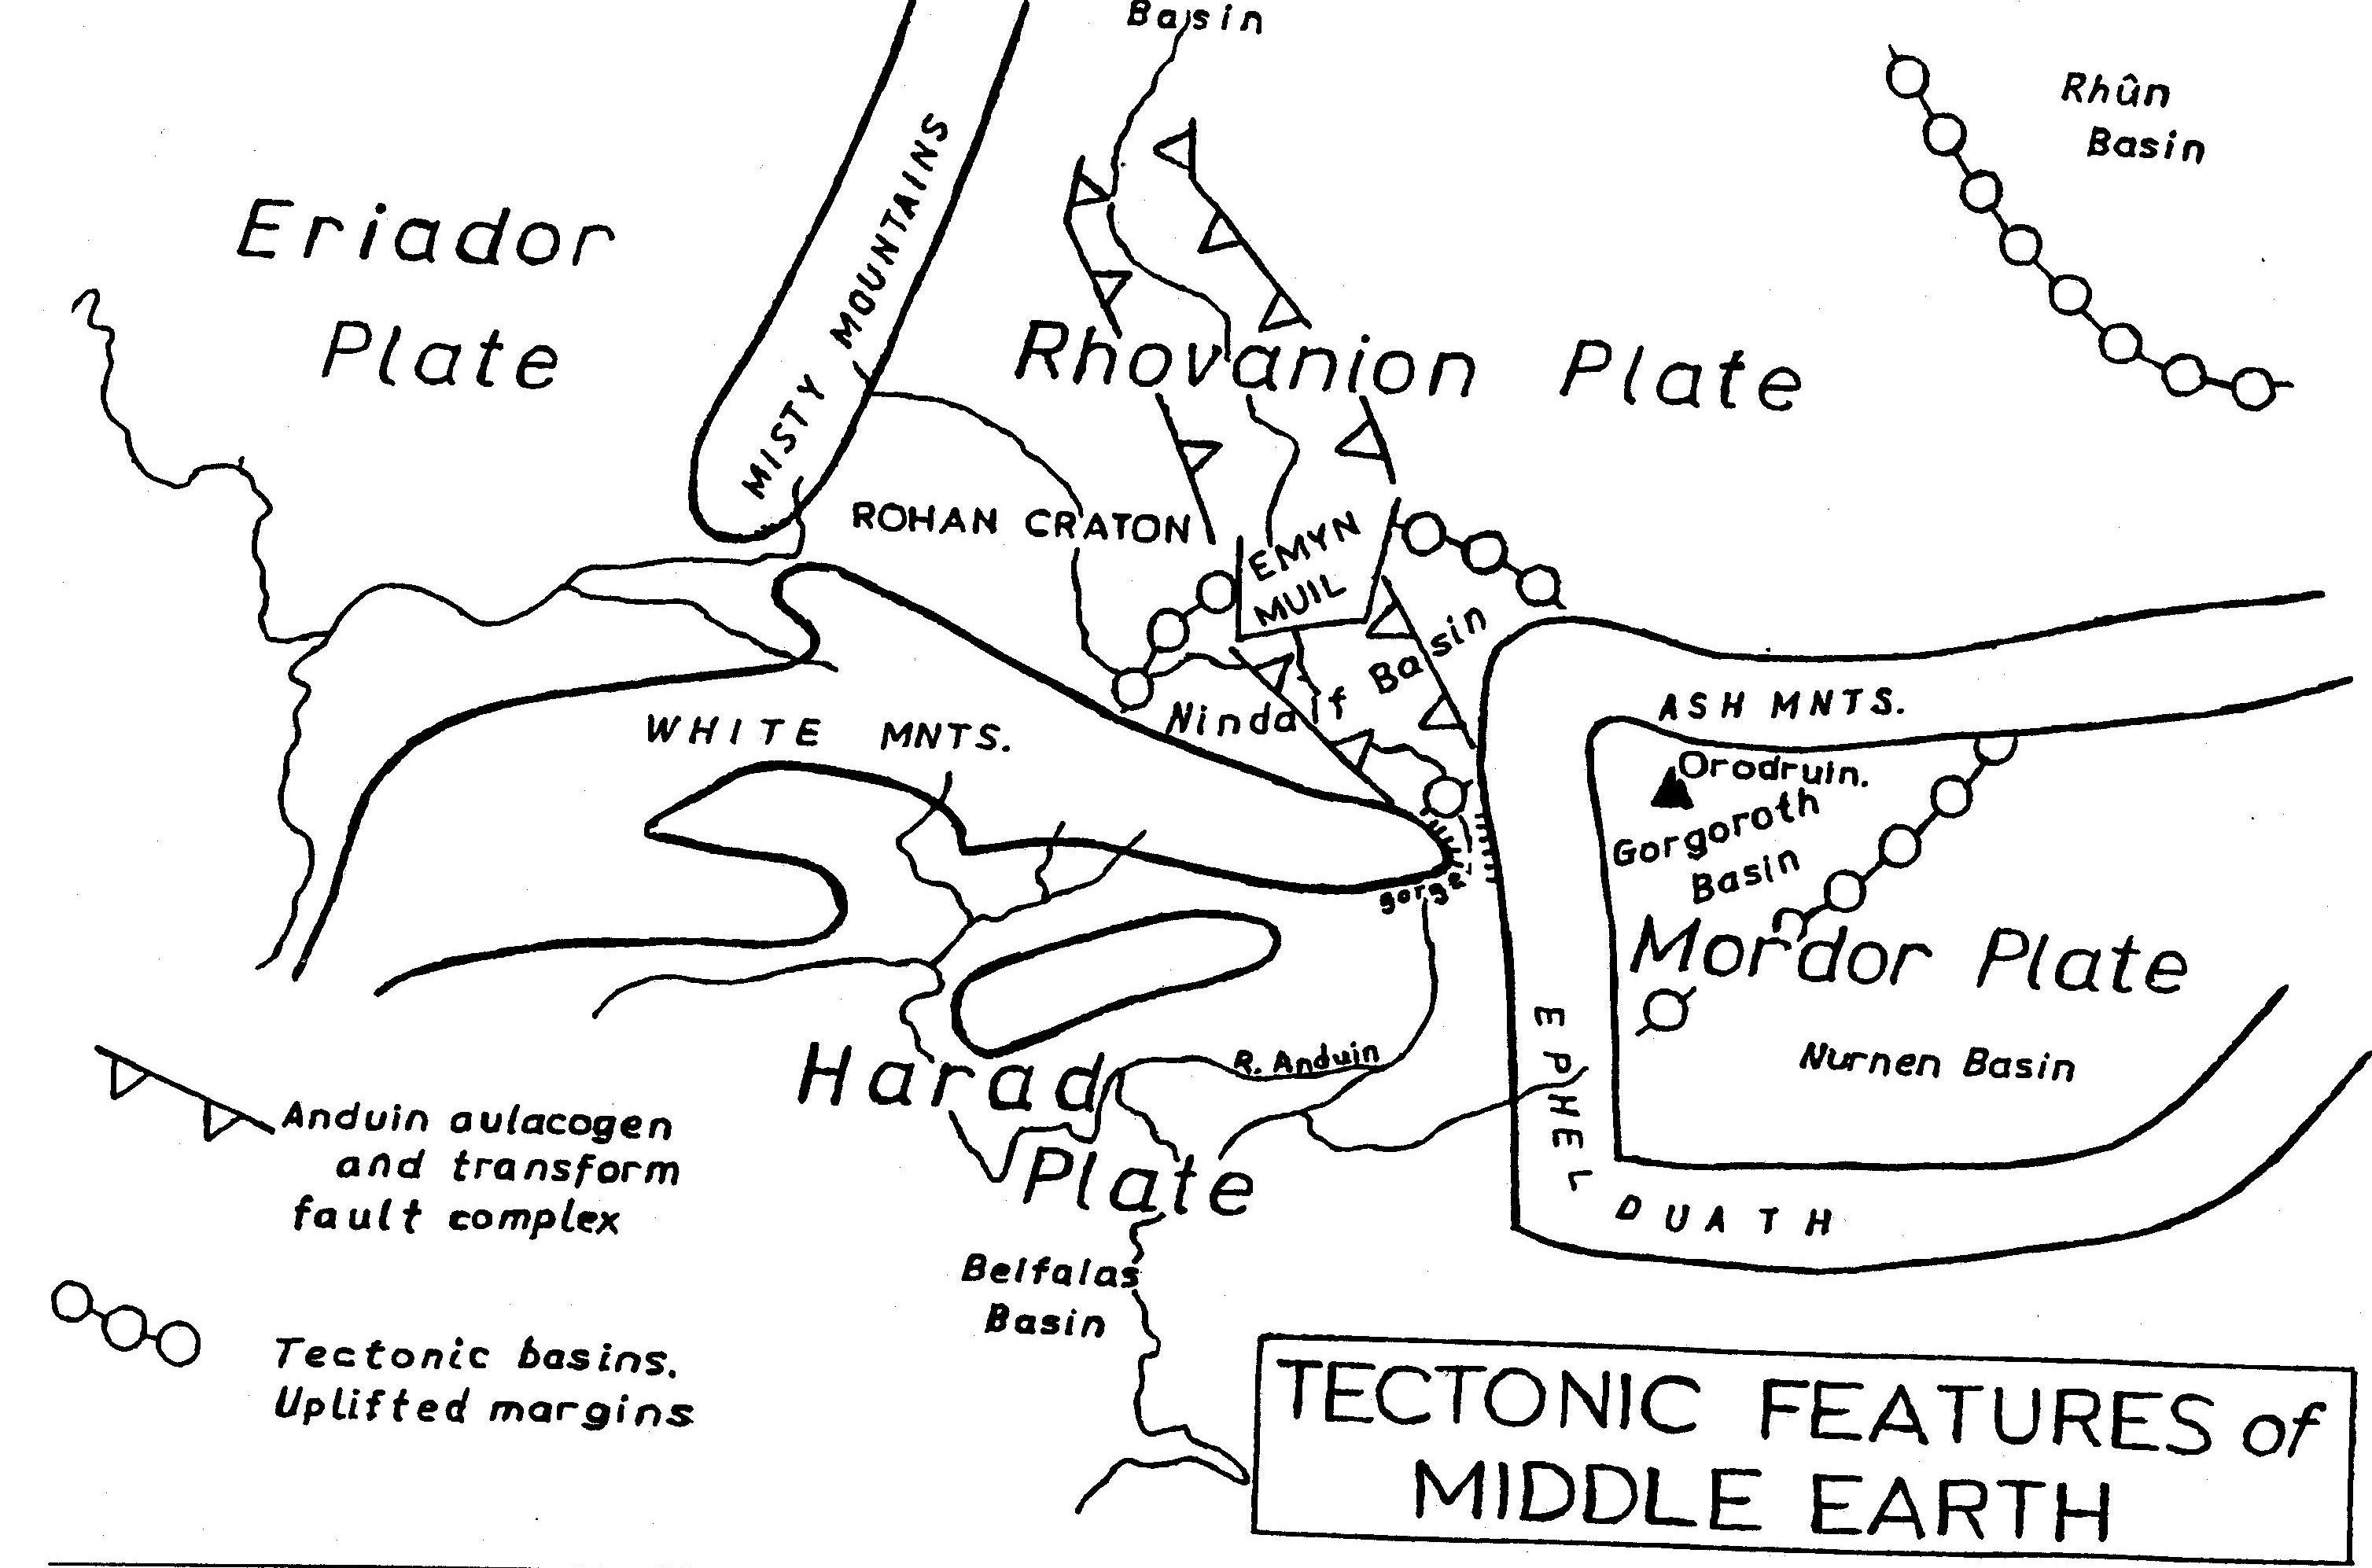 Basin
Rhûn
Basin
Eriador
Plate
MISTY MOUNTAINS
Rhovanion Plate
ROHAN CRATON
EMYN
MUIL
Nindalf Basin
WHITE MNTS.
ASH MNTS.
Orodruin.
Gorgoroth
Basin
gorge
Mordor Plate
Nurnen Basin
EPHEL
DUATH
R. Anduin
Harad
Plate
Belfalas
Basin
Anduin aulacogen
and transform
fault complex
Tectonic basins.
Uplifted margins
TECTONIC FEATURES of
MIDDLE EARTH